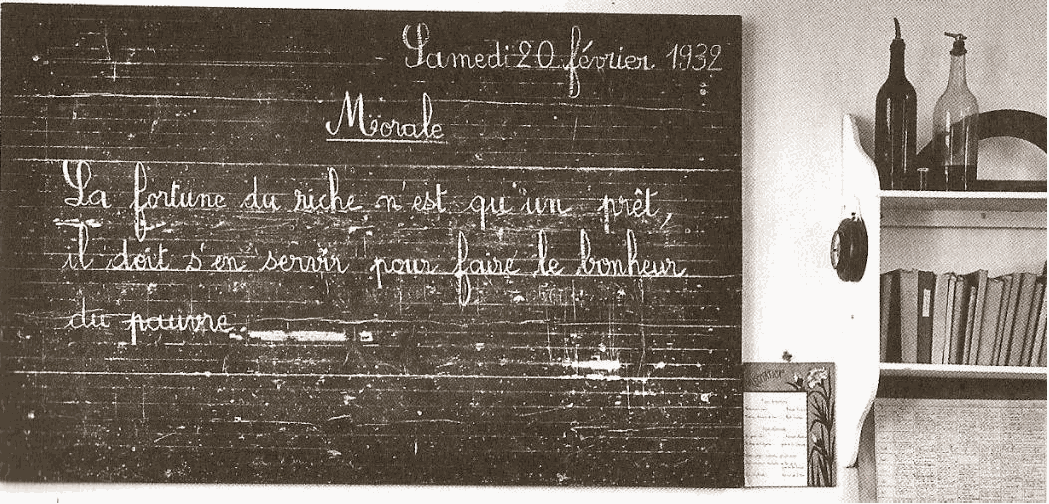 Samedi 20 février 1932
Morale
La fortune du riche n'est qu'un prêt,
il doit s'en servir pour faire le bonheur
du pauvre.